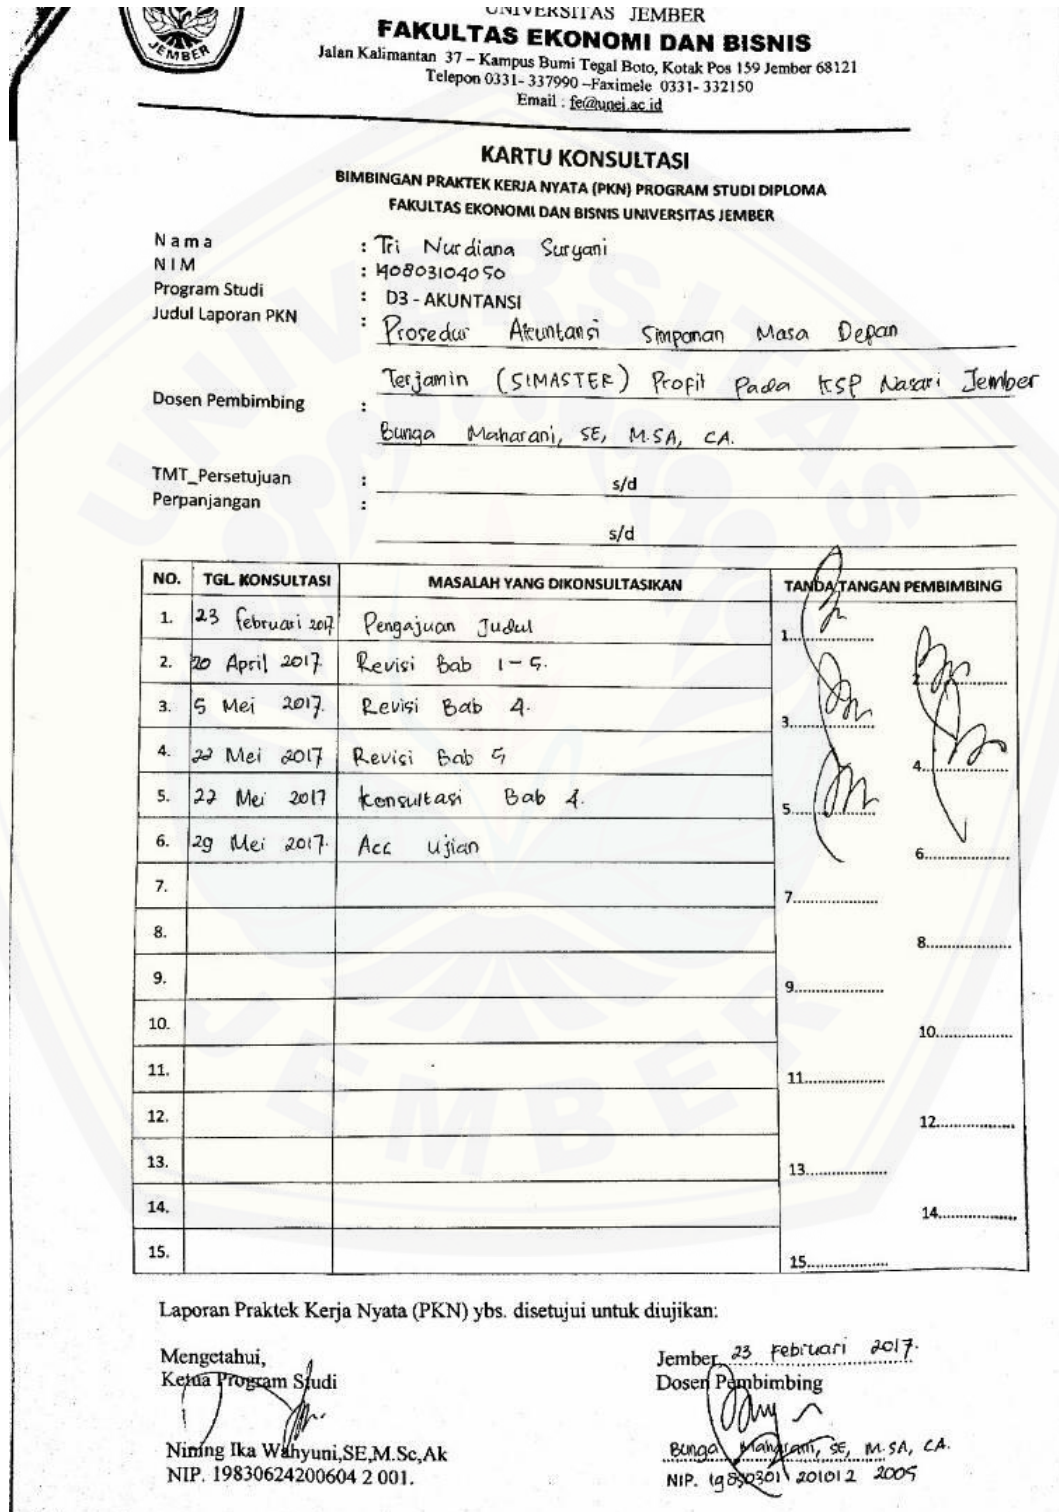 JEMBER
UNIVERSITAS JEMBER
FAKULTAS EKONOMI DAN BISNIS
Jalan Kalimantan 37 – Kampus Bumi Tegal Boto, Kotak Pos 159 Jember 68121
Telepon 0331- 337990 –Faximele 0331- 332150
Email : fe@unej.ac.id
KARTU KONSULTASI
BIMBINGAN PRAKTEK KERJA NYATA (PKN) PROGRAM STUDI DIPLOMA
FAKULTAS EKONOMI DAN BISNIS UNIVERSITAS JEMBER
N a m a : Tri Nurdiana Suryani
N I M : 140803104050
Program Studi : D3 - AKUNTANSI
Judul Laporan PKN : Prosedur Akuntansi Simpanan Masa Depan
Terjamin (SIMASTER) Profit Pada KSP Nasari Jember
Dosen Pembimbing :
Bunga Maharani, SE, M.SA, CA.
TMT_Persetujuan : s/d
Perpanjangan :
s/d
NO. TGL. KONSULTASI MASALAH YANG DIKONSULTASIKAN TANDA TANGAN PEMBIMBING
1. 23 februari 2017 Pengajuan Judul 1..................
2. 20 April 2017. Revisi Bab 1 - 5. 2..................
3. 5 Mei 2017. Revisi Bab 4. 3..................
4. 22 Mei 2017 Revisi Bab 5 4..................
5. 22 Mei 2017 konsultasi Bab 4. 5..................
6. 29 Mei 2017. Acc Ujian 6..................
7. 7..................
8. 8..................
9. 9..................
10. 10..................
11. 11..................
12. 12..................
13. 13..................
14. 14..................
15. 15..................
Laporan Praktek Kerja Nyata (PKN) ybs. disetujui untuk diujikan:
Mengetahui,
Ketua Program Studi
Nining Ika Wahyuni,SE,M.Sc,Ak
NIP. 19830624200604 2 001.
Jember, 23 Februari 2017.
Dosen Pembimbing
Bunga Maharani, SE, M.SA, CA.
NIP. 19850301 201012 2005
UNIVERSITAS
JEMBER